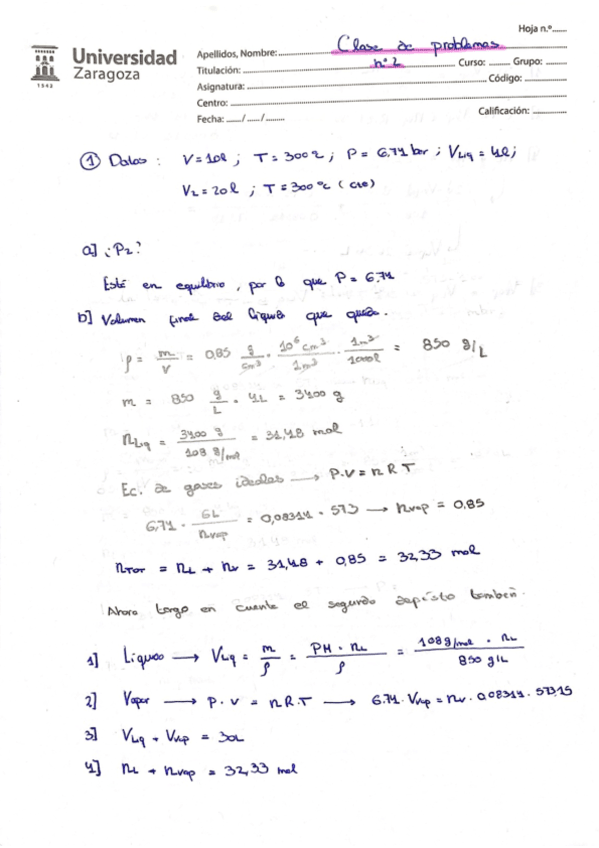 Hoja n.º......
Universidad
Zaragoza
1542
Apellidos, Nombre: Clase de problemas
Titulación: nº 2 Curso: Grupo:
Asignatura: Código:
Centro:
Fecha: ...../...../........ Calificación:
① Datos : V = 10l ; T = 300 ºC ; P = 6,71 bar ; VLiq = 4l ;
V2 = 20l ; T = 300 ºC ( cte )
a] ¿P2?
Está en equilibrio, por lo que P = 6,71
b] Volumen final del líquido que queda.
ρ = m/V = 0,85 g/cm³ · 10⁶ cm³/1m³ · 1m³/1000l = 850 g/L
m = 850 g/L · 4L = 3400 g
nLiq = 3400 g / 108 g/mol = 31,48 mol
Ec. de gases ideales → P·V = n R T
6,71 · 6L/nvap = 0,08314 · 573 → nvap = 0,85
nTOT = nL + nv = 31,48 + 0,85 = 32,33 mol
Ahora tengo en cuenta el segundo depósito también.
1] Líquido → VLiq = m/ρ = PM · nL/ρ = 108 g/mol · nL / 850 g/L
2] Vapor → P · V = n R · T → 6.71 · Vvap = nv · 0,08314 · 573,15
3] VLiq + Vvap = 30L
4] nL + nvap = 32,33 mol